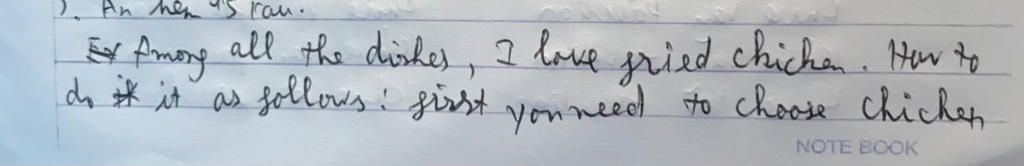 ). An hem us rau.
Among all the dishes, I love fried chicken. How to
do it as follows: first you need to choose chicken
NOTE BOOK